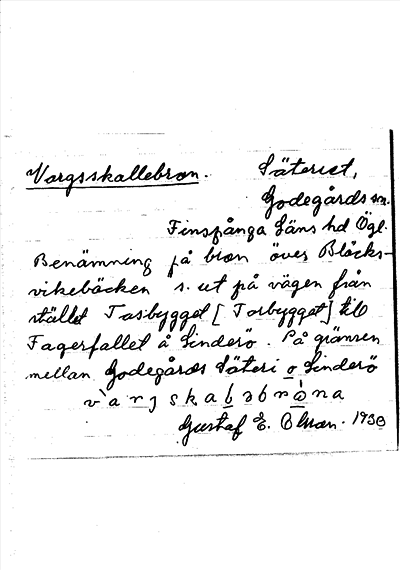 Vargsskallebron. Säteriet,
Godegårds sn.
Finspånga Läns hd Ögl.
Benämning på bron över Blåcks-
vikebäcken s. ut på vägen från
stället Tasbygget [Torbygget] till
Fagerfallet å Linderö. På gränsen
mellan Godegårds Säteri o Linderö
Gustaf E. Olsson. 1930